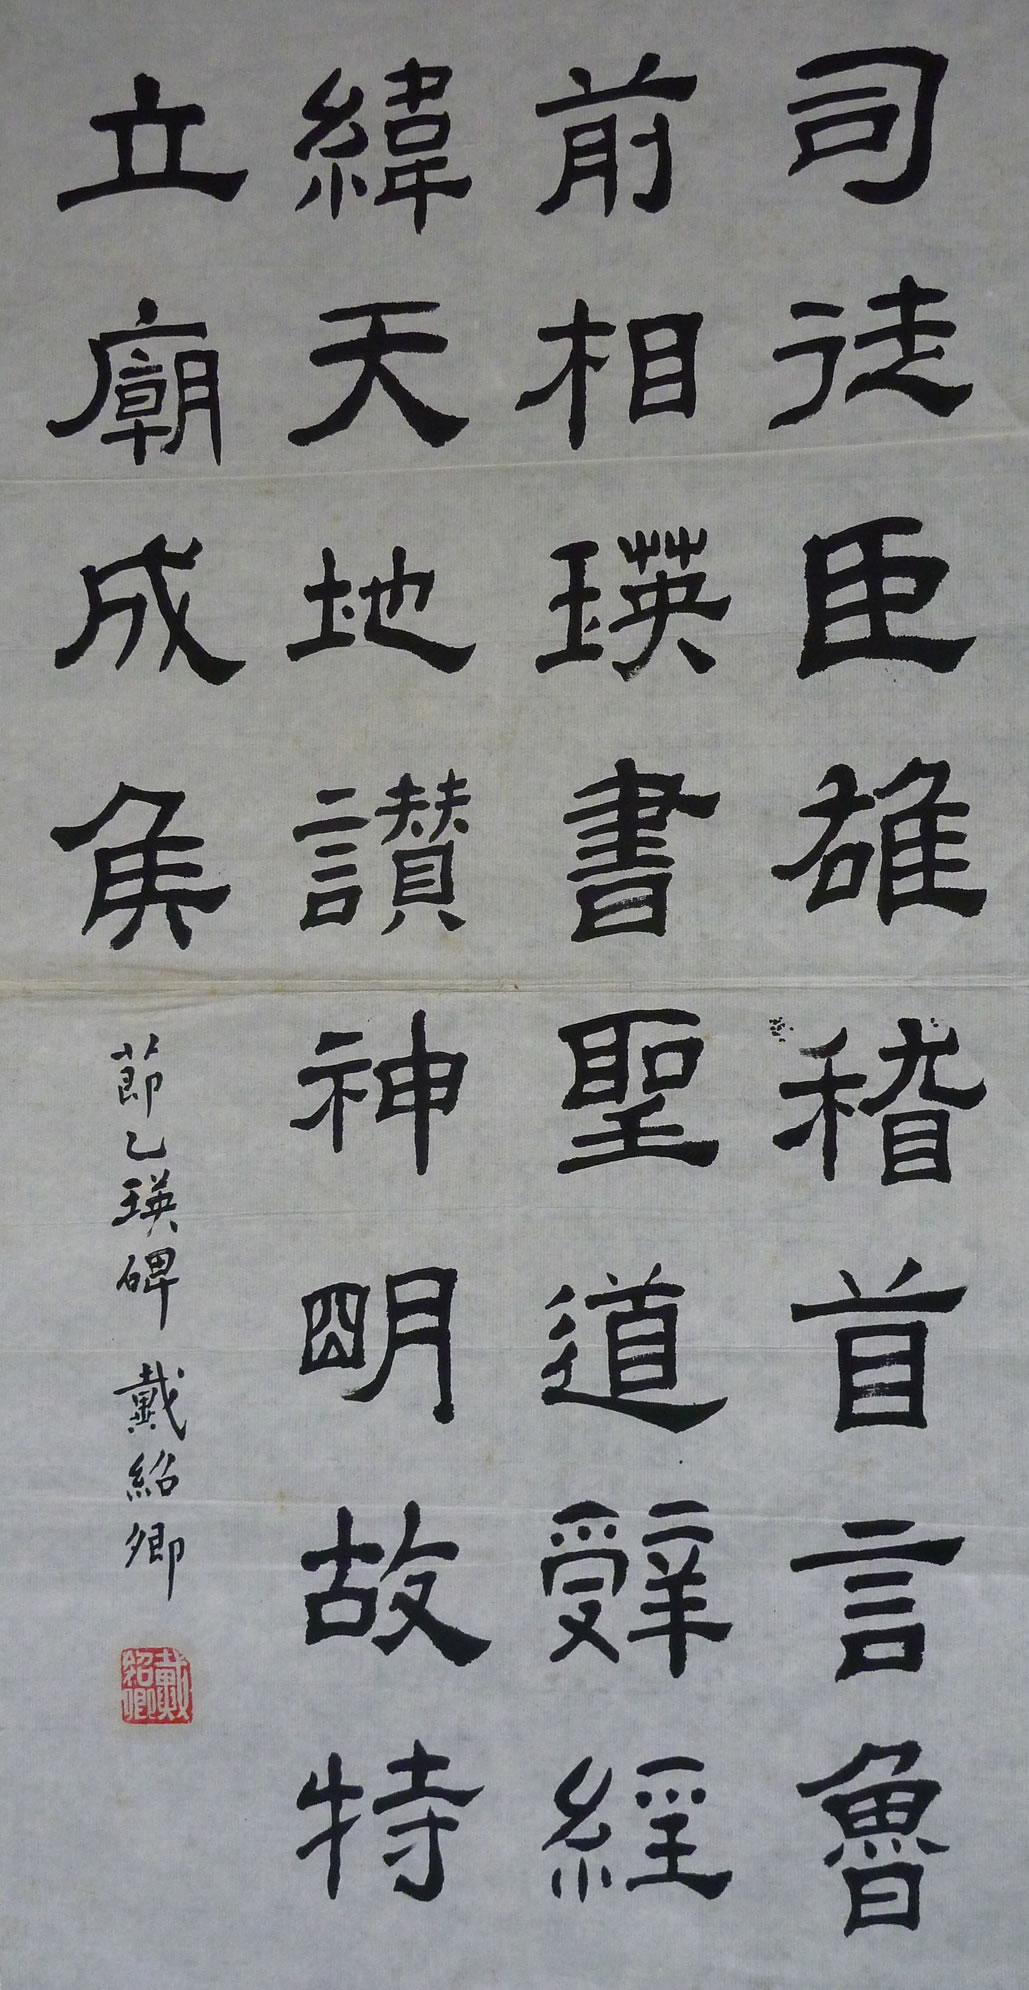 司徒臣雄稽首言魯
前相瑛書聖道辤經
緯天地讃神明故特
立廟成矦
節乙瑛碑 戴紹卿
戴紹卿